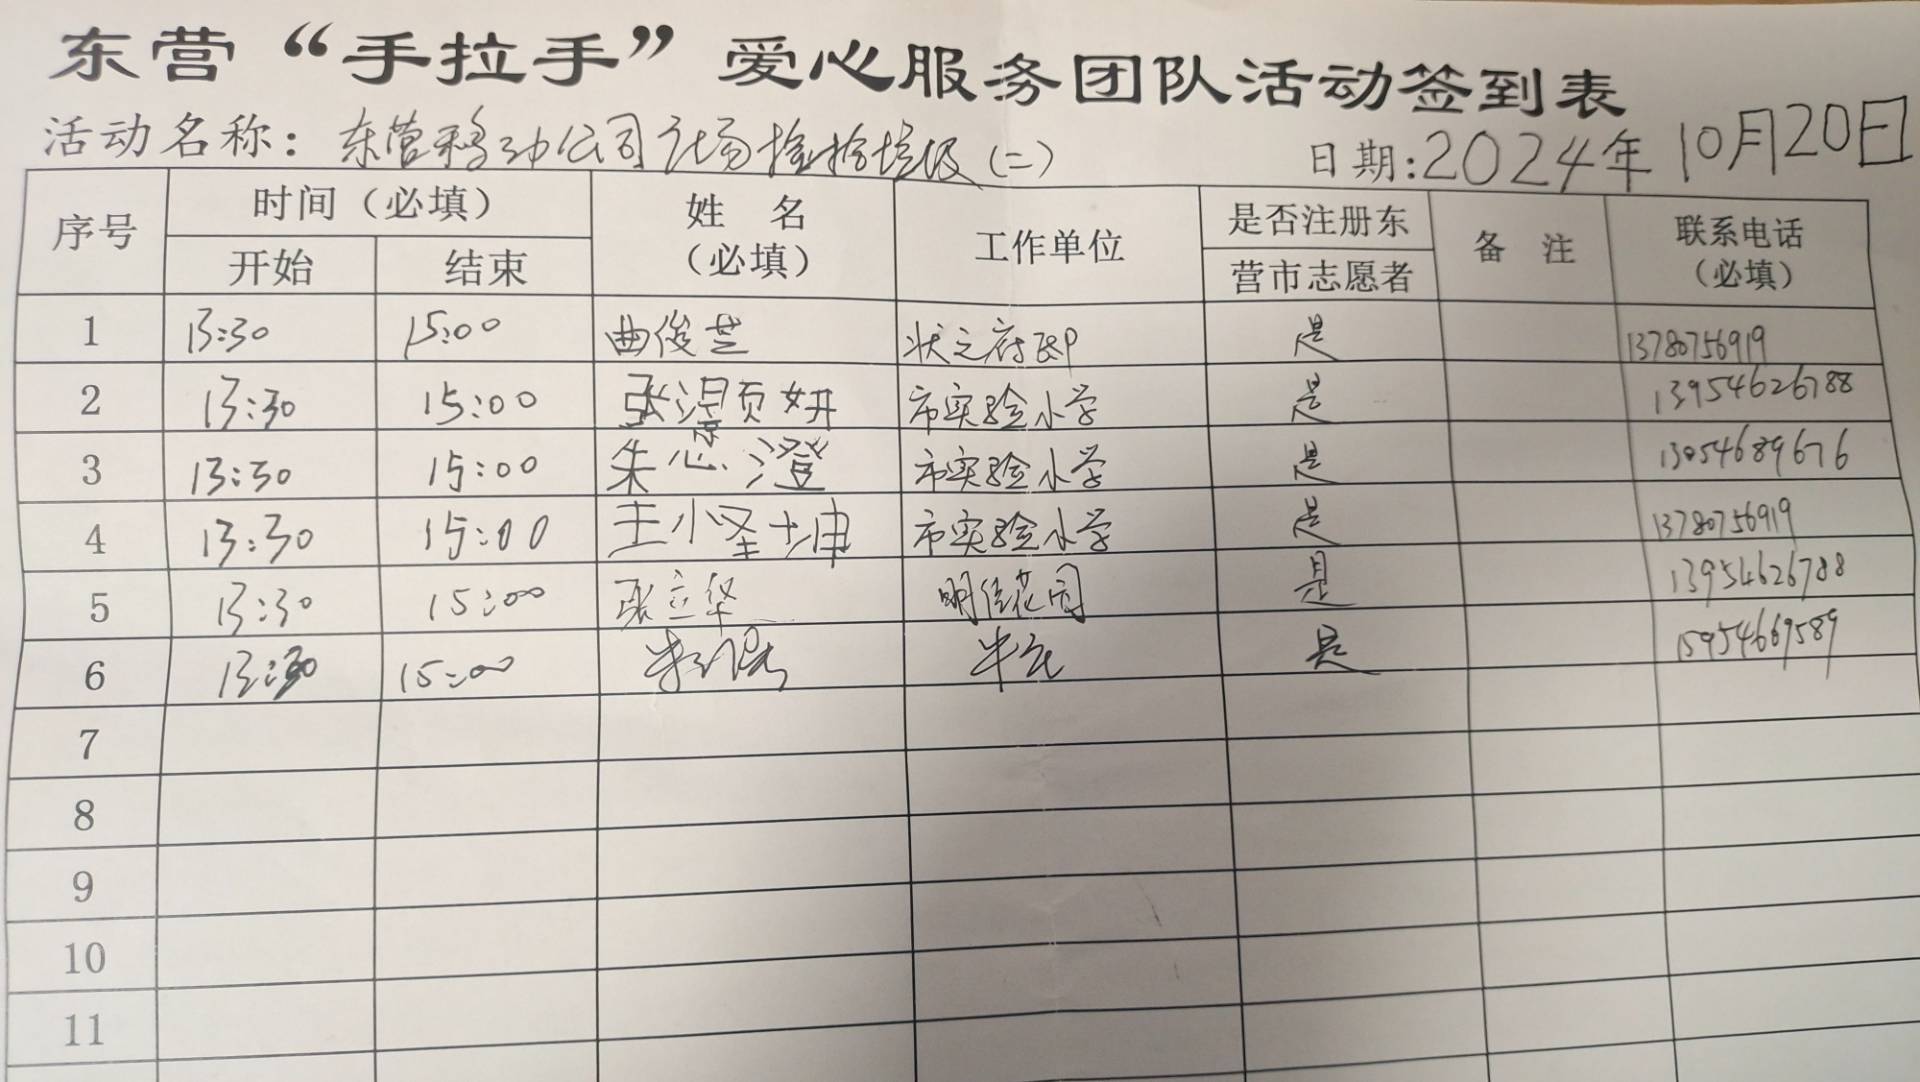 东营“手拉手”爱心服务团队活动签到表
活动名称：东营移动公司广场捡拾垃圾（二） 日期:2024年10月20日
序号 时间（必填） 姓 名（必填） 工作单位 是否注册东营市志愿者 备 注 联系电话（必填）
开始 结束
1 13:30 15:00 曲俊芝 状之府 是 13780756919
2 13:30 15:00 张 妍 市实验小学 是 13954626788
3 13:30 15:00 朱 澄 市实验小学 是 13054689676
4 13:30 15:00 王小 坤 市实验小学 是 13780756919
5 13:30 15:00 张立华 明佳花园 是 13954626788
6 13:30 15:00 是 15954669589
7
8
9
10
11